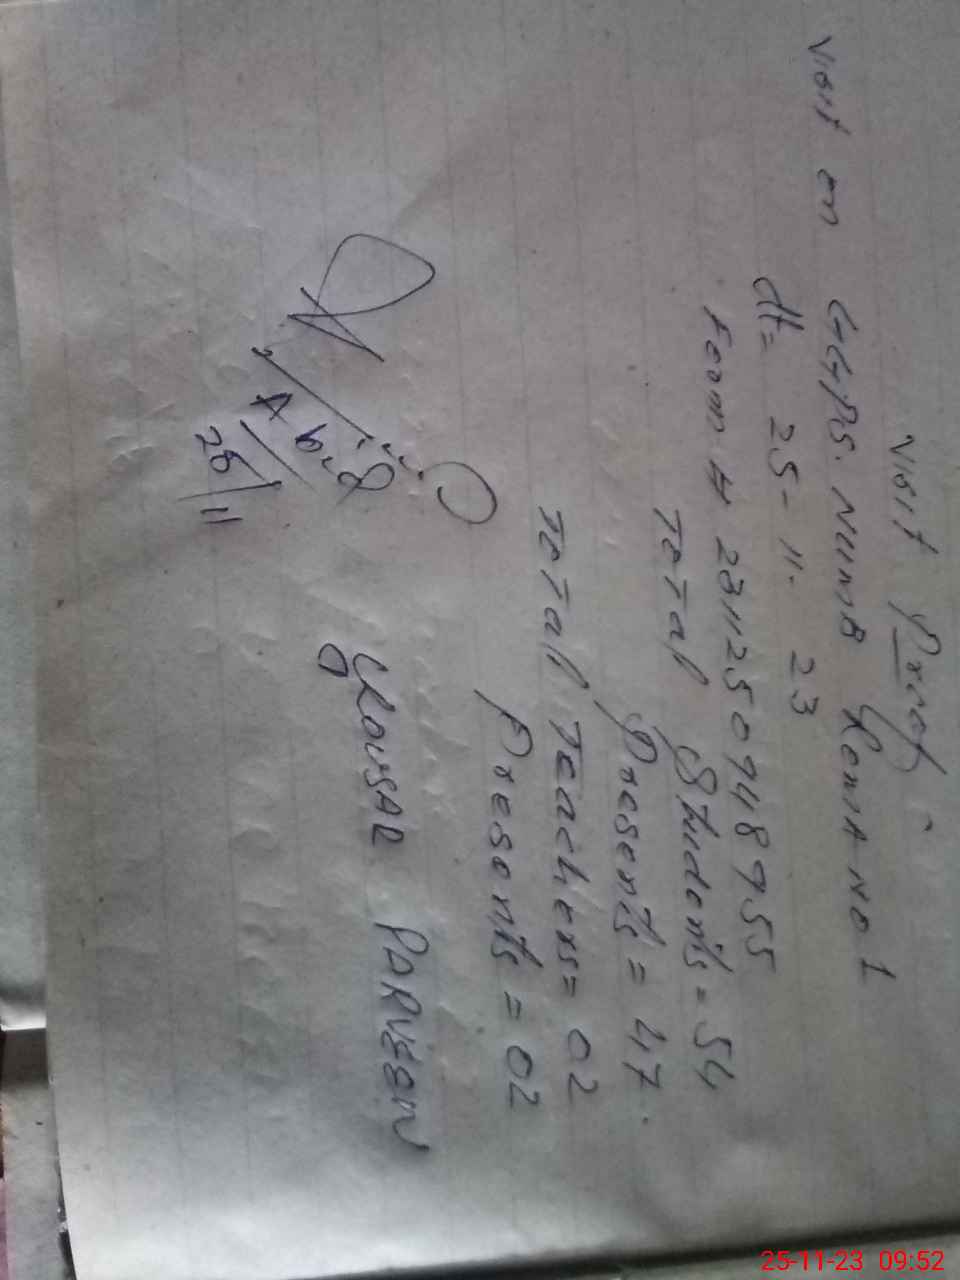 Visit Proof
Visit on GGPS. NUMB
No 1
dt = 25-11-23
Total Students = 54
Presents = 47.
Total Teachers = 02
Presents = 02
KAUSAR PARVEEN
25-11-23 09:52